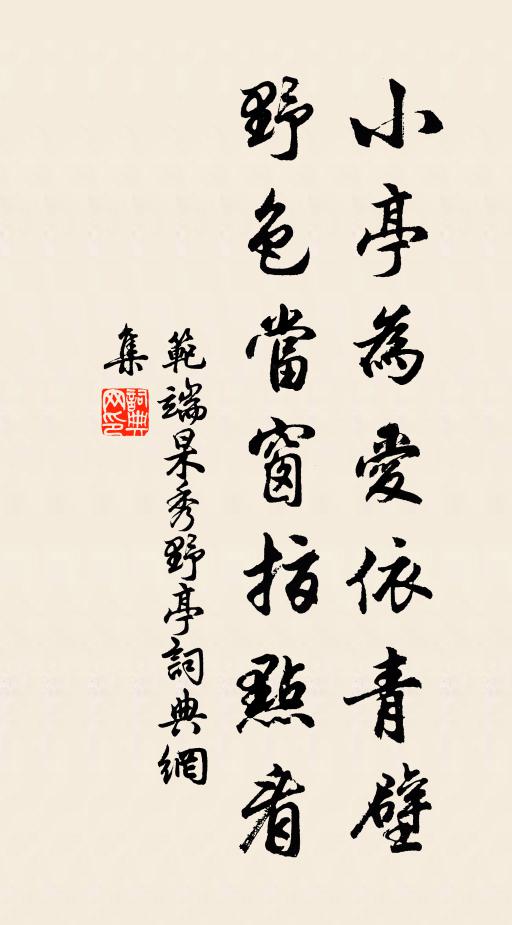 小亭為愛依青壁
野色當窗指點看
範端杲秀野亭詞典網
集
詞典
网印